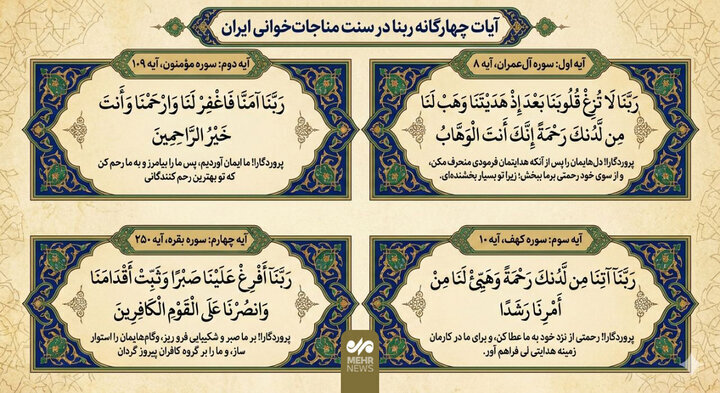 آیات چهارگانه ربنا در سنت مناجات‌خوانی ایران
آیه اول: سوره آل‌عمران، آیه ۸
رَبَّنَا لَا تُزِغْ قُلُوبَنَا بَعْدَ إِذْ هَدَيْتَنَا وَهَبْ لَنَا
مِن لَّدُنكَ رَحْمَةً إِنَّكَ أَنتَ الْوَهَّابُ
پروردگارا! دل‌هایمان را پس از آنکه هدایتمان فرمودی منحرف مکن،
و از سوی خود رحمتی بر ما ببخش؛ زیرا تو بسیار بخشنده‌ای.
آیه دوم: سوره مؤمنون، آیه ۱۰۹
رَبَّنَا آمَنَّا فَاغْفِرْ لَنَا وَارْحَمْنَا وَأَنتَ
خَيْرُ الرَّاحِمِينَ
پروردگارا! ما ایمان آوردیم، پس ما را بیامرز و به ما رحم کن
که تو بهترین رحم کنندگانی
آیه سوم: سوره کهف، آیه ۱۰
رَبَّنَا آتِنَا مِن لَّدُنكَ رَحْمَةً وَهَيِّئْ لَنَا مِنْ
أَمْرِنَا رَشَدًا
پروردگارا! رحمتی از نزد خود به ما عطا کن، و برای ما در کارمان
زمینه هدایتی لی فراهم آور.
آیه چهارم: سوره بقره، آیه ۲۵۰
رَبَّنَا أَفْرِغْ عَلَيْنَا صَبْرًا وَثَبِّتْ أَقْدَامَنَا
وَانصُرْنَا عَلَى الْقَوْمِ الْكَافِرِينَ
پروردگارا! بر ما صبر و شکیبایی فرو ریز، و گام‌هایمان را استوار
ساز، و ما را بر گروه کافران پیروز گردان
MEHR
NEWS